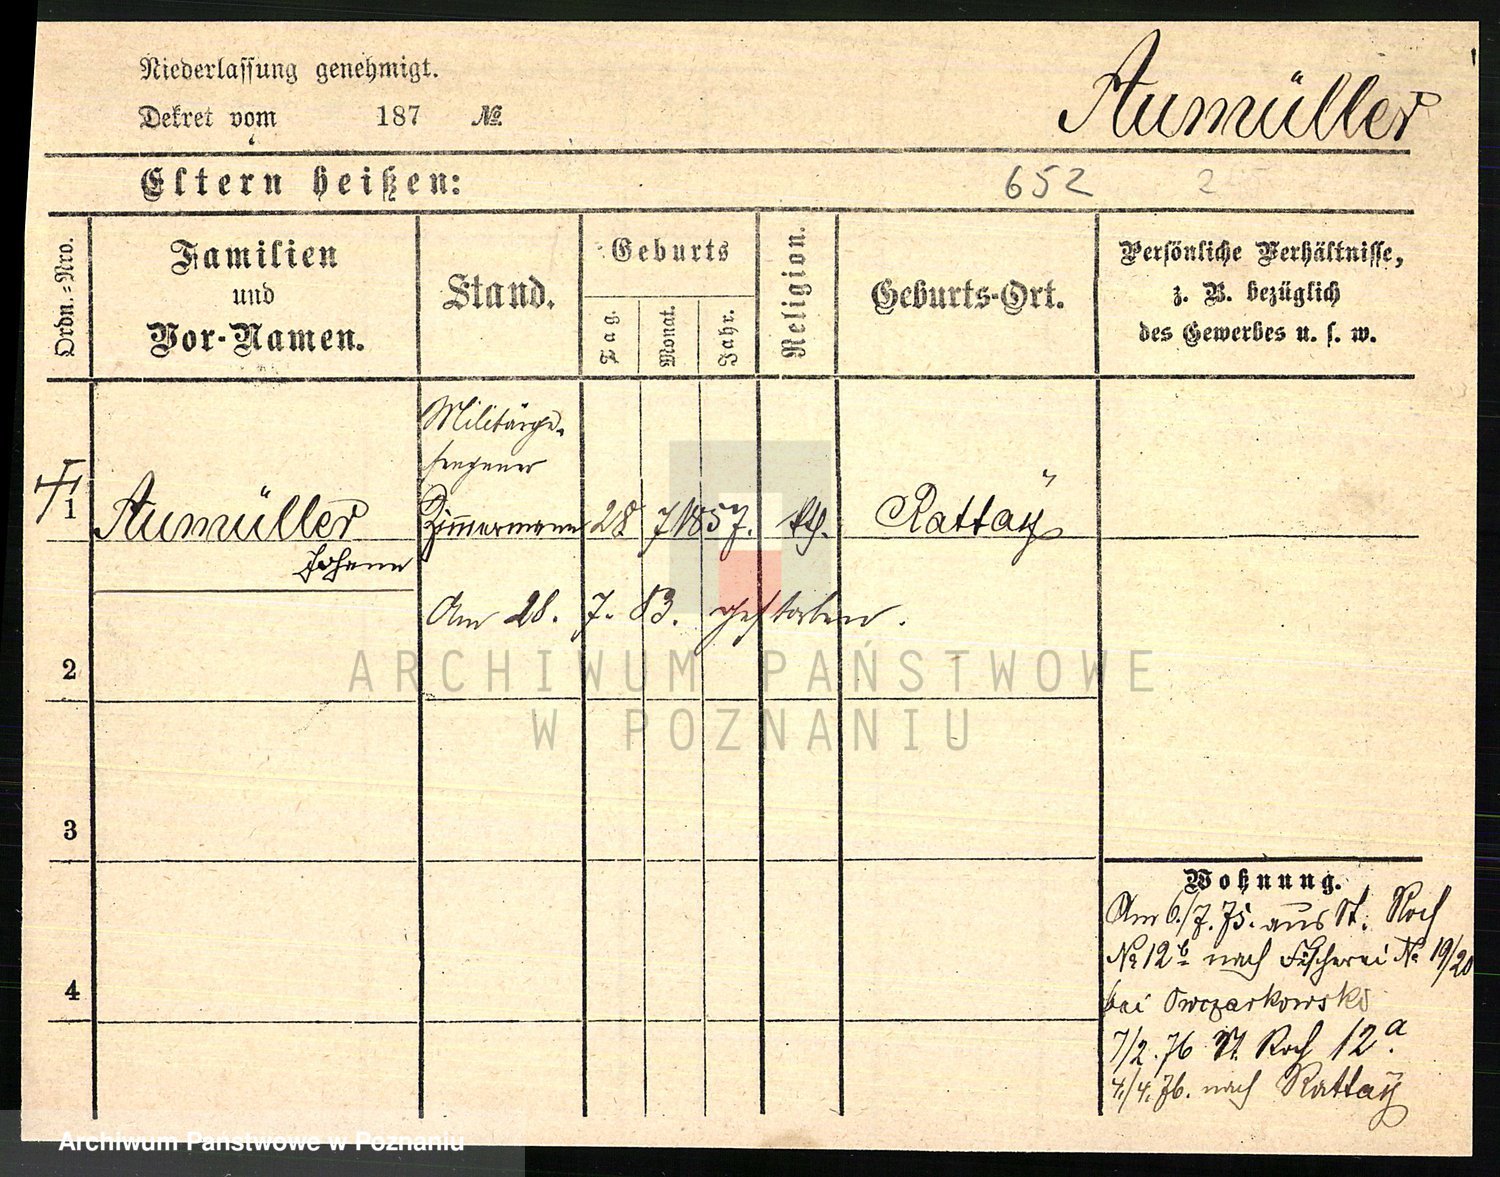 Niederlassung genehmigt.
Dekret vom 187 №
Aumüller
Eltern heißen:
652 2
Ordn.-Nro.
Familien
und
Vor-Namen.
Stand.
Geburts
Tag.
Monat.
Jahr.
Religion.
Geburts-Ort.
Persönliche Verhältnisse,
z. B. bezüglich
des Gewerbes u. s. w.
Militärge-
fangener
1 Aumüller Zimmermann 28 7 1857. kth. Rattaÿ
Johann
Am 28. 7. 83. gestorben.
2
ARCHIWUM PAŃSTWOWE
W POZNANIU
3
Wohnung.
Am 6./7. 75. aus St. Roch
№ 12 b nach Fischerei № 19/20
4
bei Owczarkowski
7/2. 76 St. Roch 12 a.
4./4. 76. nach Rattaÿ
Archiwum Państwowe w Poznaniu